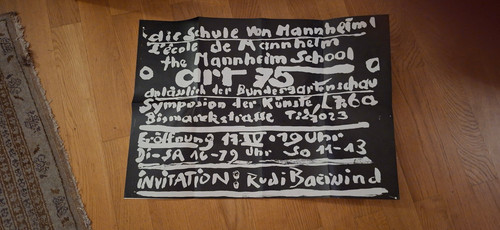 die Schule von Mannheim
L'école de Mannheim
the Mannheim School
art 75
anläslich der Bundesgartenschau
Symposion der Künste L 7,6a
Bismarckstrasse
Eröffnung 17.IV. 19 Uhr
Di-SA 16-19 Uhr So 11-13
INVITATION: Rudi Baerwind